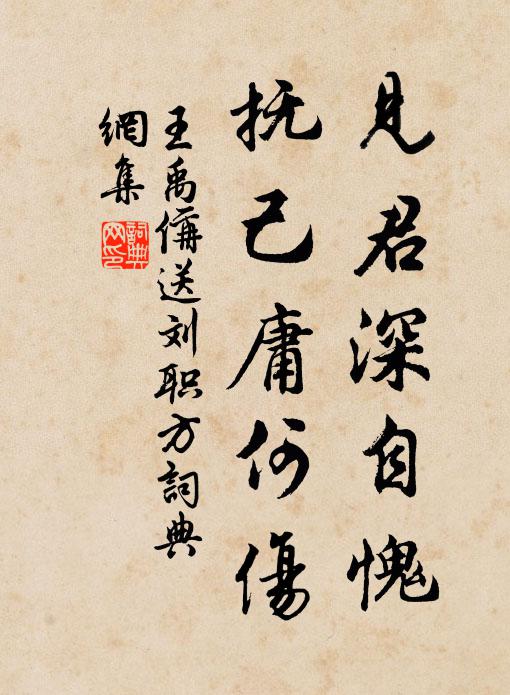 見君深自愧
抚己庸何傷
王禹偁送刘职方詞典
網集
詞典
网印